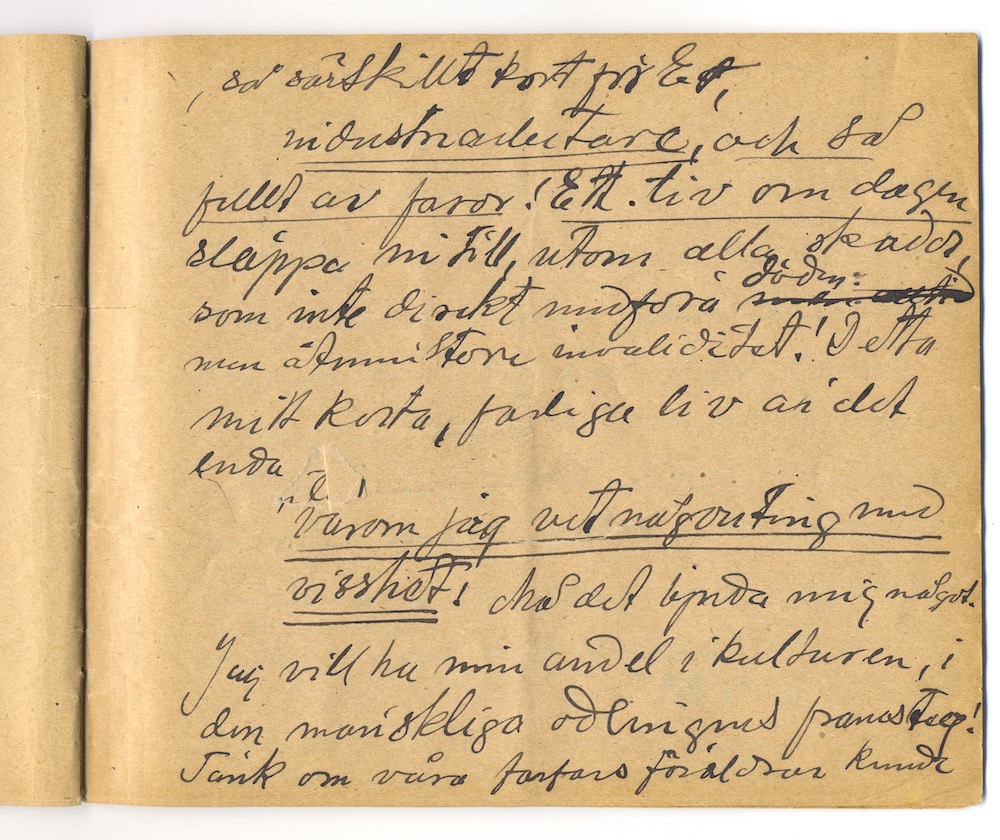 , så särskillt kort för Er,
industriarbetare, och så
fullt av faror! Ett. liv om dagen
släppa ni till, utom alla skador,
som inte direkt medföra döden:
men åtminstone invaliditet! Detta
mitt korta, farliga liv är det
enda
varom jag vet någonting med
visshet! Må det bjuda mig något.
Jag vill ha min andel i kulturen, i
den mänskliga odlingens framsteg!
Tänk om våra farfars föräldrar kunde